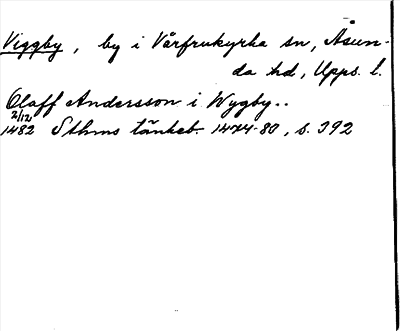 Viggby, by i Vårfrukyrka sn, Åsun-
da hd, Upps. l.
Olaff Andersson i Wygby..
2/12
1482 Sthms tänkeb. 1474-80, s. 392